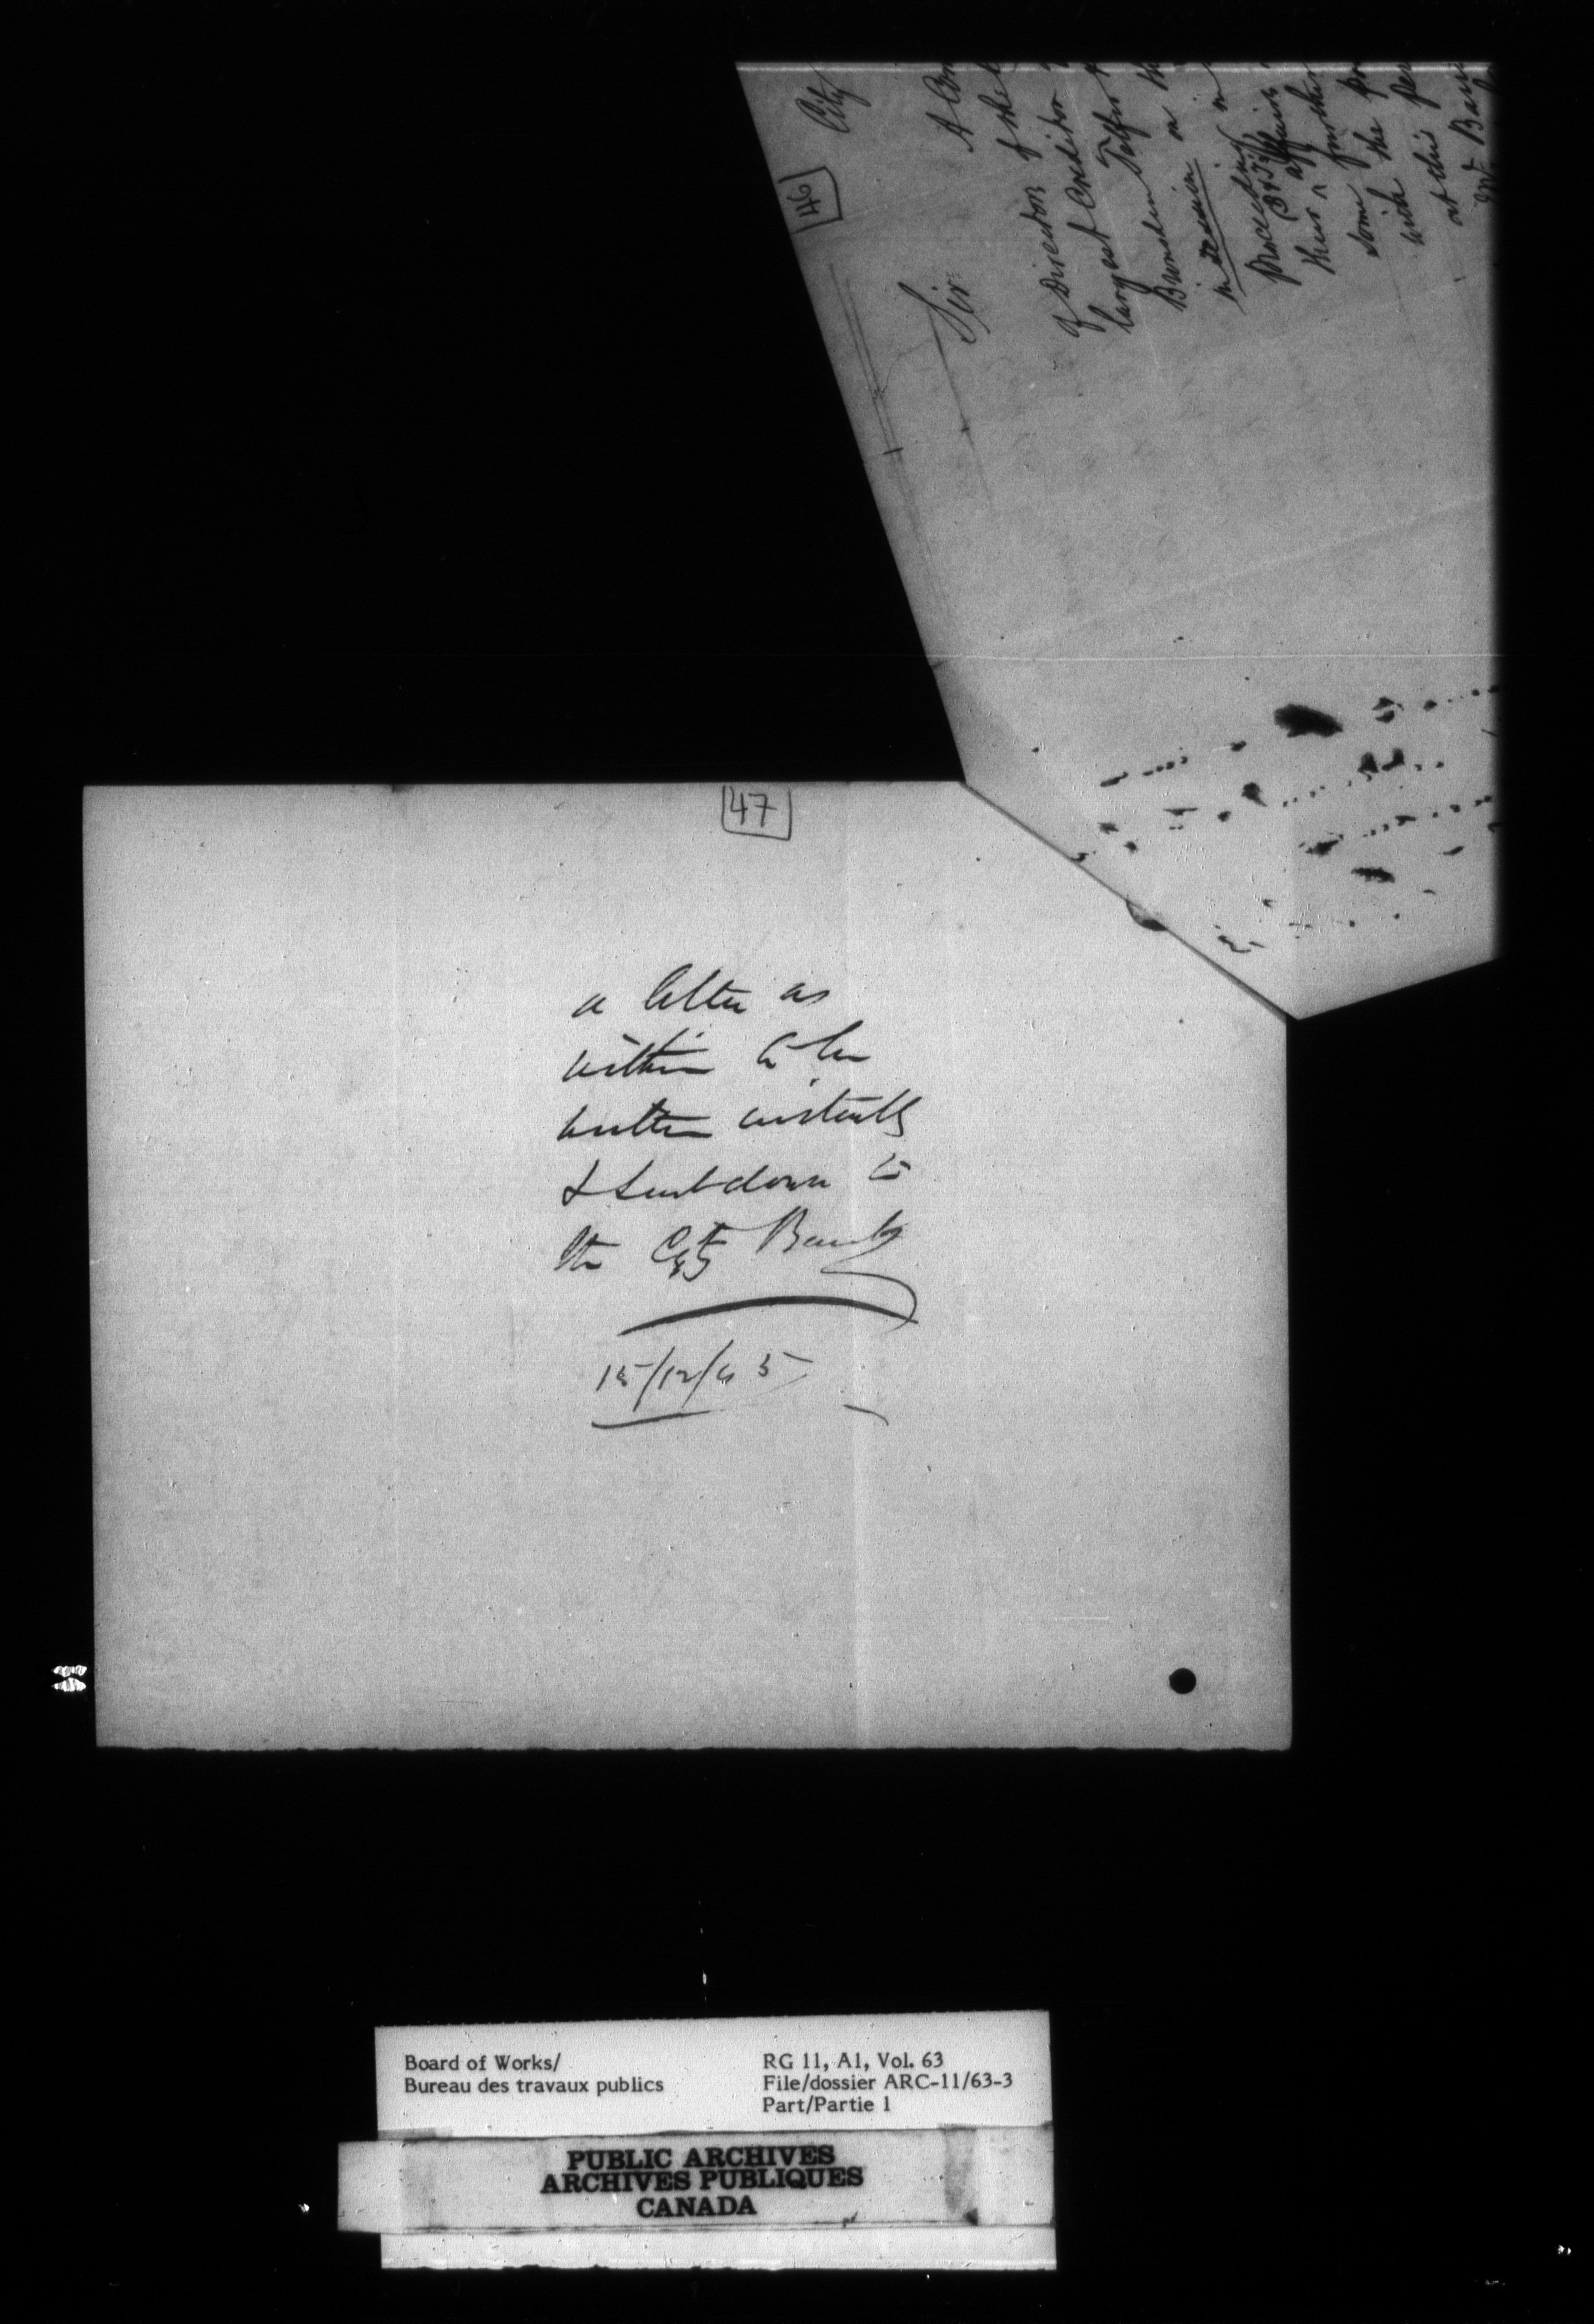 [46]
City
Sir
A Com
of the
of Directors
largest Creditor
Brunsden Telfer
on the
in session in
Proceeding
their affairs
further
some the
with the
at this
Bank
[47]
a letter as
within to be
written instantly
& sent down to
the City Bank
15/12/65
Board of Works/
Bureau des travaux publics
RG 11, A1, Vol. 63
File/dossier ARC-11/63-3
Part/Partie 1
PUBLIC ARCHIVES
ARCHIVES PUBLIQUES
CANADA